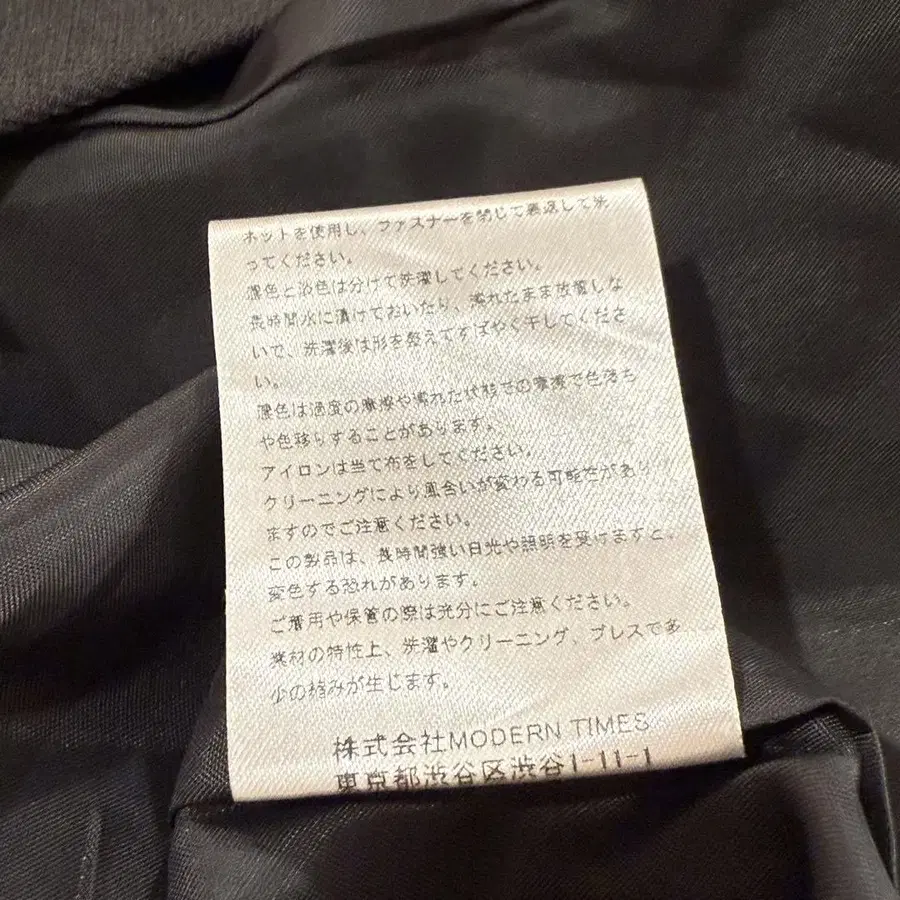 ネットを使用し、ファスナーを閉じて裏返して洗
ってください。
濃色と淡色は分けて洗濯してください。
長時間水に漬けておいたり、濡れたまま放置しな
いで、洗濯後は形を整えてすばやく干してくださ
い。
濃色は過度の摩擦や濡れた状態での摩擦で色落ち
や色移りすることがあります。
アイロンは当て布をしてください。
クリーニングにより風合いが変わる可能性があり
ますのでご注意ください。
この製品は、長時間強い日光や照明を受けますと、
変色する恐れがあります。
ご着用や保管の際は充分にご注意ください。
素材の特性上、洗濯やクリーニング、プレスで多
少の縮みが生じます。
株式会社MODERN TIMES
東京都渋谷区渋谷1-11-1